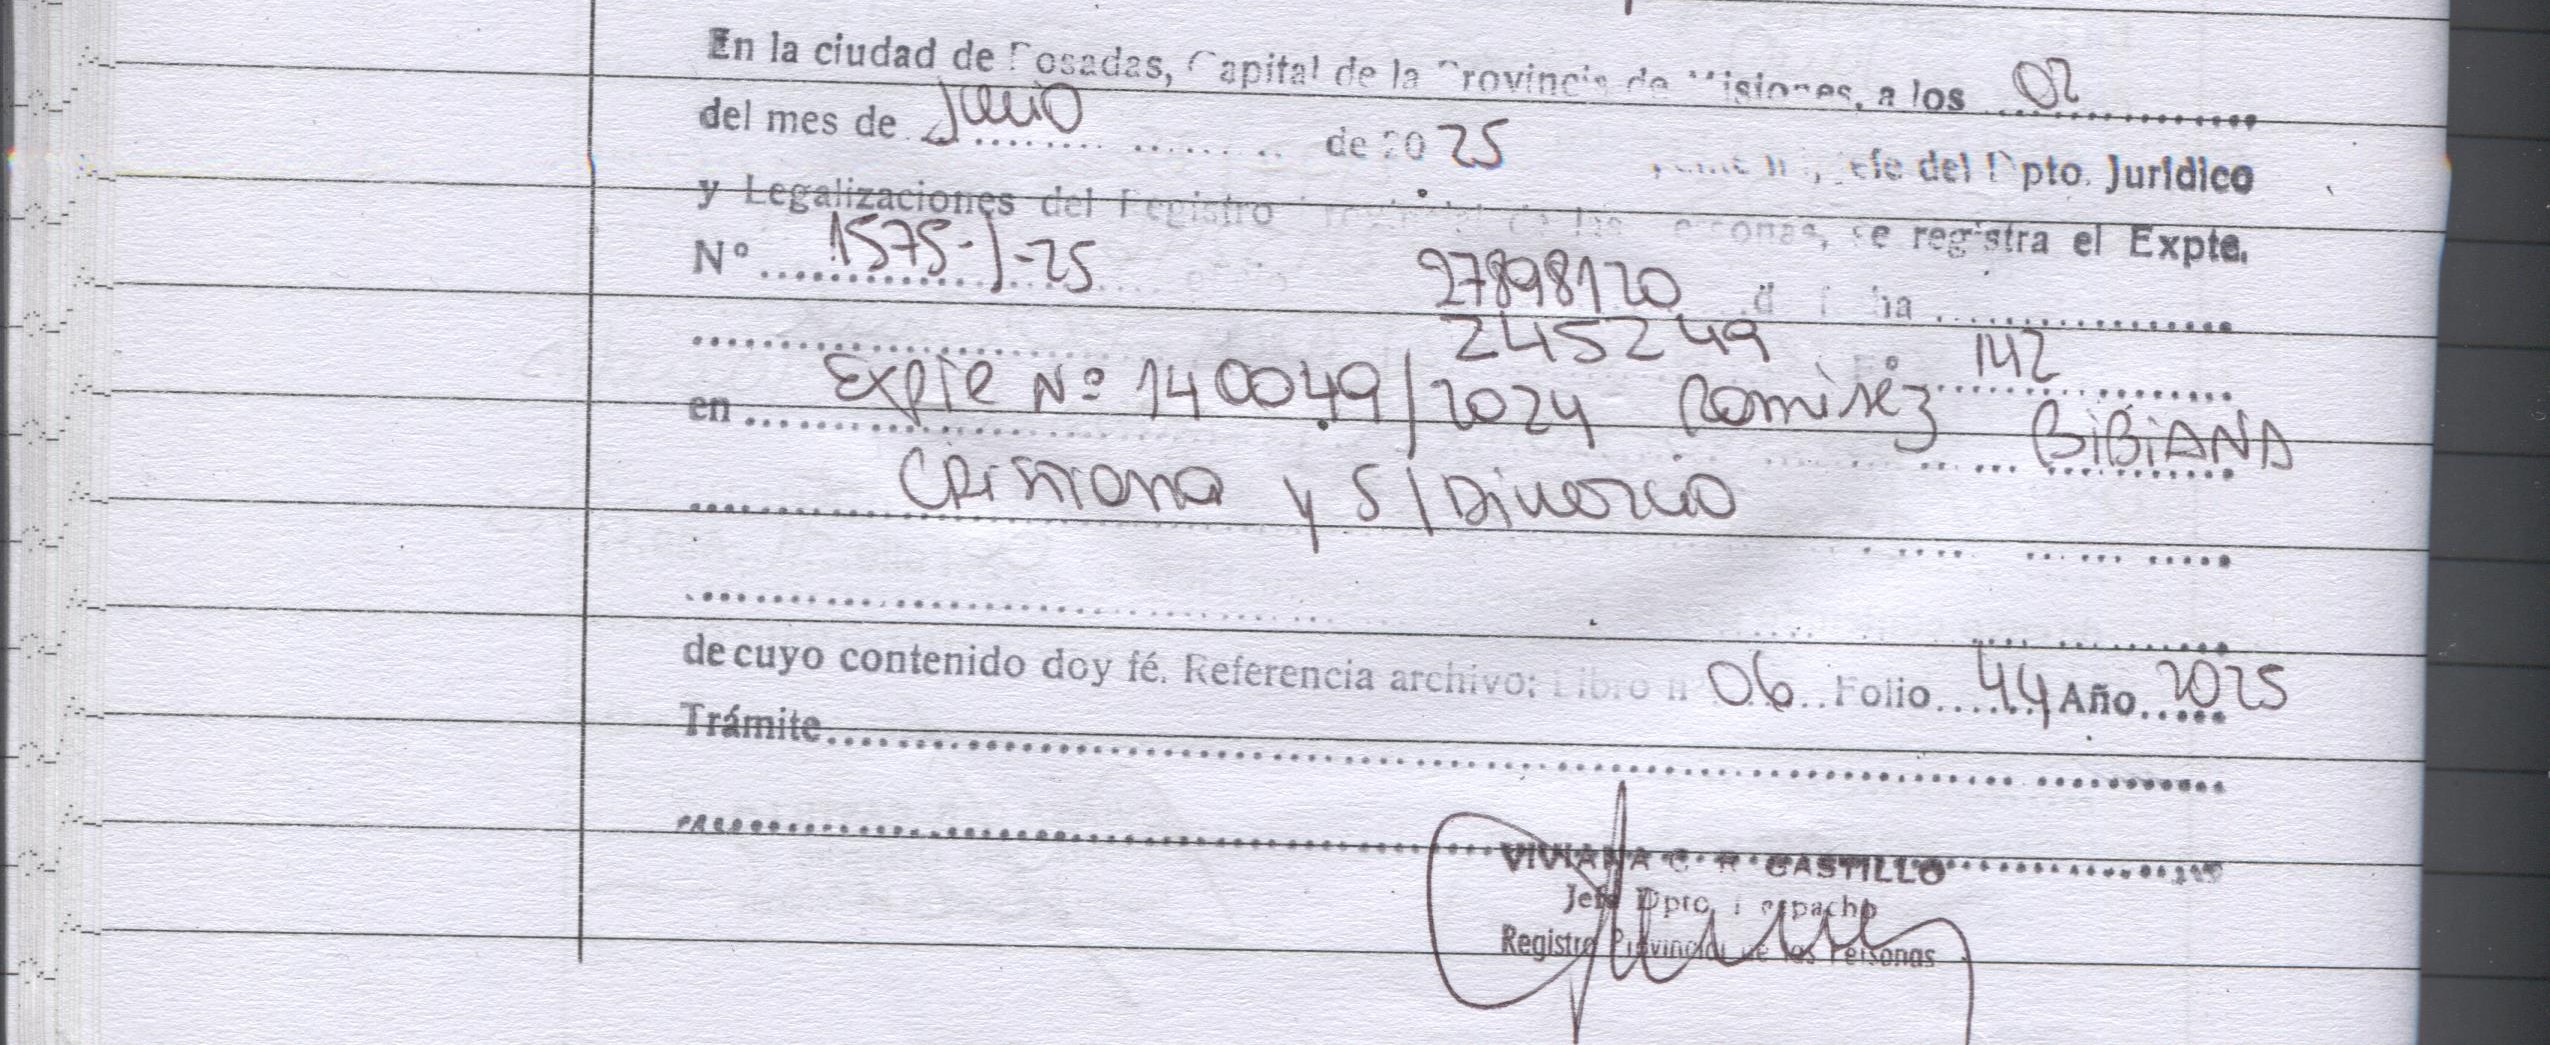 En la ciudad de Posadas, Capital de la Provincia de Misiones, a los 02
del mes de Julio de 2025 Jefe del Dpto. Jurídico
y Legalizaciones del Registro Provincial de las Personas, se registra el Expte.
Nº 1575-J-25 27898120
245249 142
en Expte Nº 140049/2024 Ramirez BiBiANA
Cristiana y S/Divorcio
de cuyo contenido doy fé. Referencia archivo: Libro nº 06 Folio 44 Año 2025
Trámite
VIVIANA C. R CASTILLO
Jefe Dpto. Despacho
Registro Provincial de las Personas